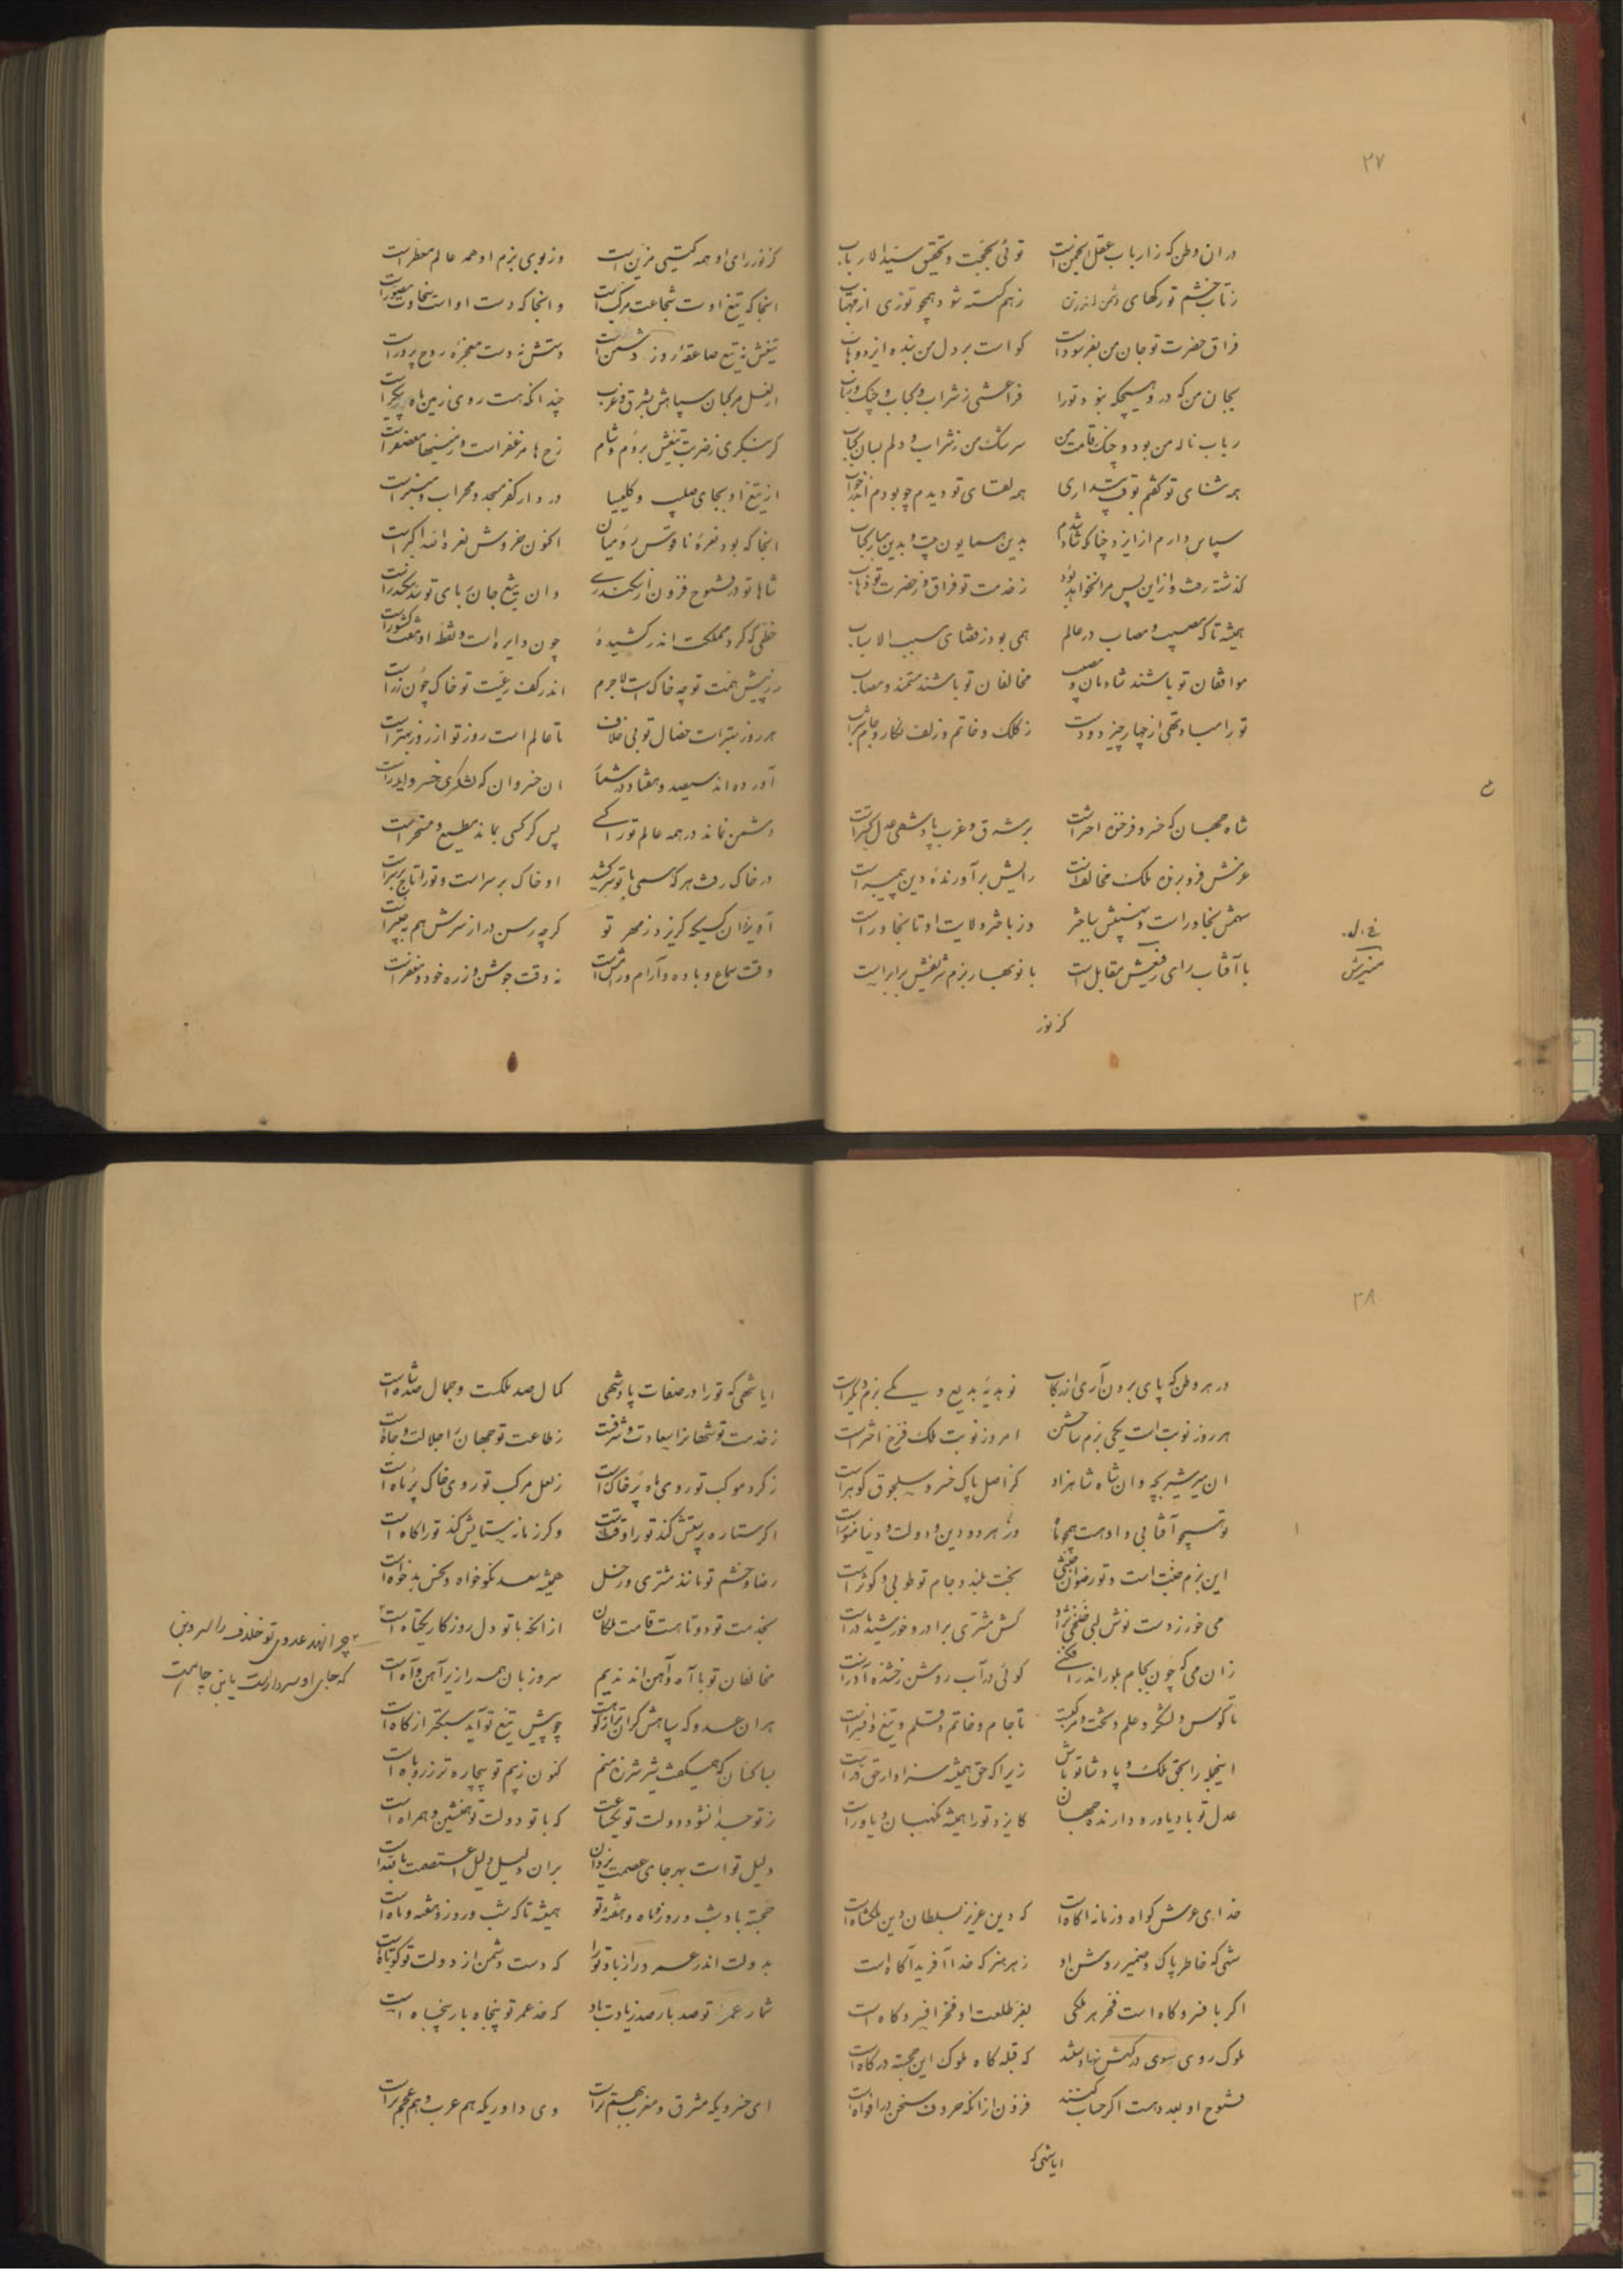 ۲۷
در ان وطن که ز ارباب عقل انجمن است توئی بحجت و تحقیق سید الارباب
ز تاب خشم تو رکهای دشمن اندر تن ز هم کسسته شود همچو توزی از مهتاب
فراق حضرت تو جان من بفرسوداست کواست بر دل من بنده ایزد وهاب
بجان من که در و هیچکه نبود تو را فرامشی ز شراب و کباب و چنک و رباب
رباب ناله من بود و چنک قامت من سرشک من ز شراب و دلم بسان کباب
همه ثنای تو کفتم بوقت بیداری همه لقای تو دیدم چو بودم اندر خواب
سپاس دارم از ایزد چنانکه شاد شدم بدین همایون و بدین مبارک
کذشته رفت و ازاین پس مرا نخواهد بود ز خدمت تو فراق و ز حضرت تو ذهاب
همیشه تا که مصیب و مصاب در عالم همی بود ز قضای مسبب الاسباب
موافقان تو باشند شادمان و مصیب مخالفان تو باشند مستمند و مصاب
تو را مباد تهی از چهار چیز دو دست ز کلک و خاتم و زلف نکار و جام شراب
شاه جهان که خسرو فرخنده اختر است بر شرق و غرب پادشهی عدل کستر است
عزمش فرو برنده ملک مخالف است رایش برآورنده دین پیمبر است
سهمش بخاور است و نهیبش بباختر وز باختر ولایت او تا بخاور است
با آفتاب رای رفیعش مقابل است با نوبهار بزم شریفش برابر است
کز نور
کز نور رای او همه کیتی مزین است وز بوی بزم او همه عالم معطر است
انجا که تیغ اوست شجاعت مرکب است وانجا که دست او است سخاوت مصور است
تیغش نه تیغ صاعقه روز دشمن است دستش نه دست معجزه روح پرور است
از نعل مرکبان سپاهش بشرق و غرب چندانکه هست روی زمین ماه پیکر است
کر بنکری ز ضربت تیغش بروم و شام
از تیغ او بجای صلیب و کلیسیا در دار کفر مسجد و محراب و منبر است
انجا که بود نعره ناقوس رومیان اکنون خروش نعره الله اکبر است
شاها تو در فتوح فزون از سکندری وان تیغ جان ربای تو سد سکندر است
خطی که کرد مملکت اندر کشیدهٔ چون دایره است و نقطه او هفت کشور است
در پیش همت تو چه خاک است لاجرم اندر کف رعیت تو خاک چون زر است
هر روز بهتر است خصال تو بی خلاف تا عالم است روز تو از روز بهتر است
آورده اند سیصد و هفتاد در شمار ان خسروان که لشکری خسرو ایدر است
دشمن نماند در همه عالم تو را کسی پس کر کسی بماند مطیع و مسخر است
در خاک رفت هر که همی با تو سر کشید او خاک بر سر است و تو را تاج بر سر است
آویزد ان کسیکه کریزد ز مهر تو کرچه رسن دراز سرش هم بچنبر است
وقت سماع و باده و آرام و رامش است نه وقت جوشن و زره و خود و مغفر است
۲۸
در هر وطن که پای برون آری از رکاب نو بدیهٔ بدیع و یکی بزم دیکر است
هر روز نوبت است یکی بزم و جشن امروز نوبت ملک فرخ اختر است
ان میر شیر بچه و ان شاه شاهزاد کز اصل پاک خسرو سلجوق کوهر است
تو همچو آفتابی و او هست همچو ماه وز هر دو دین و دولت و دنیا منور است
این بزم جنت است و تو رضوان جنتی تخت بلند و جام تو طوبی و کوثر است
می خور ز دست نوش لبی خلخی نژاد کش مشتری برادر و خورشید مادر است
زان می که چون بجام بلور اندر افکنی کوئی در آب روشن رخشنده آذر است
تا کوس و لشکر و علم و تخت و مرکب است تا جام و خاتم و قلم و تیغ و افسر است
اینجمله را بحق ملک و پادشا تو باش زیرا که حق همیشه سزاوار حق ور است
عدل تو باد یاور و دارنده جهان کایزد تو را همیشه نکهبان و یاور است
خدای عرش کواه و زمانه اکاه است که دین عزیز بسلطان دین ملکشاه است
شهی که خاطر پاک و ضمیر روشن او ز هر هنر که خدا آفرید آکاه است
اکر بافسر و کاه است فخر هر ملکی بفر طلعت او فخر افسر و کاه است
ملوک روی سوی درکهش نهادستند که قبله کاه ملوک این خجسته درکاه است
فتوح او بعدد هست اکر حساب کنند فزون از انکه حروف سخن در افواه است
ایا شهی که
ایا شهی که تو را در صفات پادشهی کمال صد ملکست و جمال صد شاه است
ز خدمت تو شهانرا سعادت و شرفست ز طاعت تو جهانرا جلالت و جاه است
ز کرد موکب تو روی ماه پر خاک است ز نعل مرکب تو روی خاک پر ماه است
اکر ستاره پرستش کند تو را وقتست وکر زمانه ستایش کند تو را کاه است
رضا و خشم تو مانند مشتری و زحل همیشه سعد نکوخواه و نحس بدخواه است
بخدمت تو دوتا هست قامت ملکان از انکه با تو دل روزکار یکتاه است
مخالفان تو با آه و آهن اند ندیم سر و زبان همه را زیر آهن و آه است
هران عدو که سپاهش کران تر از کوه است چو پیش تیغ تو آید سبکتر از کاه است
بسا کسان که همیکفت شیر شرزه منم کنون ز بیم تو بیچاره تر ز روباه است
ز تو جدا نشود دولت تو یکساعت که با تو دولت تو همنشین و همراه است
دلیل تو است بهر جای عصمت یزدان بران دلیل دلیل اعتصمت بالله است
خجسته باد شب و روز و ماه و هفته تو همیشه تا که شب و روز و هفته و ماه است
بدولت اندر عمر دراز باد تو را که دست دشمن از دولت تو کوتاه است
شمار عمر تو صد بار صد زیادت باد که حد عمر تو پنجاه بار پنجاه است
ای خسرویکه مشرق و مغرب بهم تراست وی داوریکه هم عرب و هم عجم تراست
چرا نهد عدوی تو خلاف را سر وبن
که جای او سر دار است یا بن چاهست